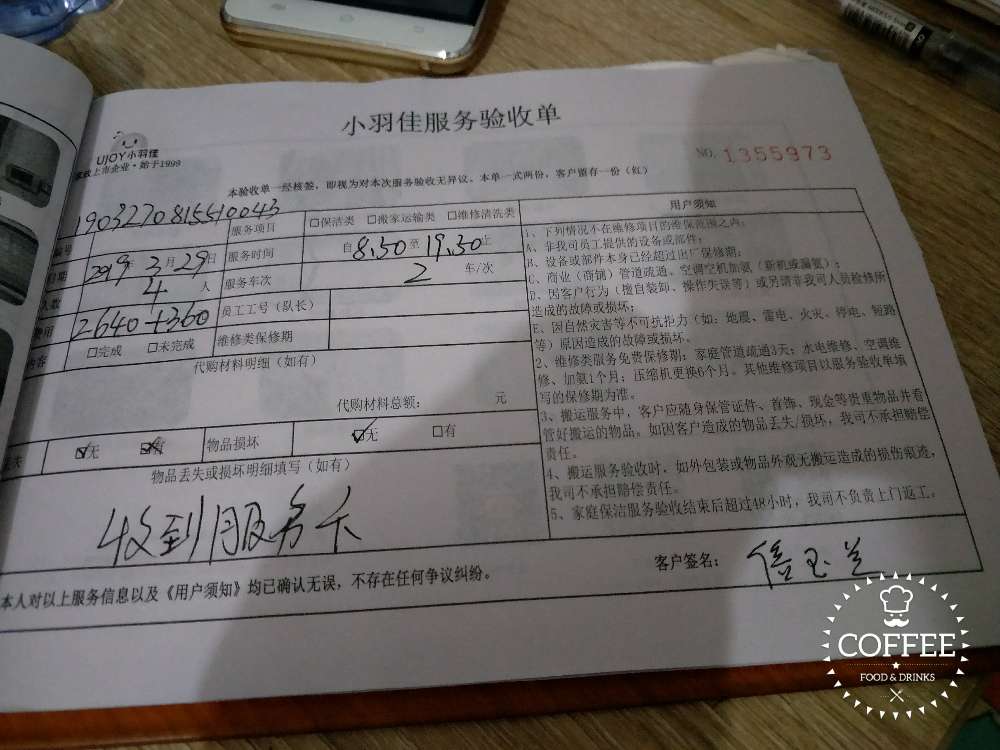 小羽佳服务验收单
UJOY小羽佳
家政上市企业·始于1999
NO. 1355973
本验收单一经核签,即视为对本次服务验收无异议。本单一式两份,客户留存一份(红)
编号 1903270815510043 服务项目 □保洁类 □搬家运输类 □维修清洗类
日期 2019年3月29日 服务时间 自8.50至19.30止
人数 4人 服务车次 2 车/次
费用 2640+360 员工工号(队长)
内容 □完成 □未完成 维修类保修期
代购材料明细(如有)
代购材料总额: 元
丢失 ☑无 有 物品损坏 ☑无 □有
物品丢失或损坏明细填写(如有)
收到服务卡
本人对以上服务信息以及《用户须知》均已确认无误,不存在任何争议纠纷。
用户须知
1、下列情况不在维修项目的维保范围之内:
A、非我司员工提供的设备或部件;
B、设备或部件本身已经超过出厂保修期;
C、商业(商铺)管道疏通、空调空机加氨(新机或漏氨);
D、因客户行为(擅自装卸、操作失误等)或另请非我司人员检修所
造成的故障或损坏;
E、因自然灾害等不可抗拒力(如:地震、雷电、火灾、停电、短路
等)原因造成的故障或损坏。
2、维修类服务免费保修期:家庭管道疏通3天;水电维修、空调维
修、加氨1个月;压缩机更换6个月。其他维修项目以服务验收单填
写的保修期为准。
3、搬运服务中,客户应随身保管证件、首饰、现金等贵重物品并看
管好搬运的物品。如因客户造成的物品丢失/损坏,我司不承担赔偿
责任。
4、搬运服务验收时,如外包装或物品外观无搬运造成的损伤痕迹,
我司不承担赔偿责任。
5、家庭保洁服务验收结束后超过48小时,我司不负责上门返工。
客户签名:
COFFEE
FOOD & DRINKS